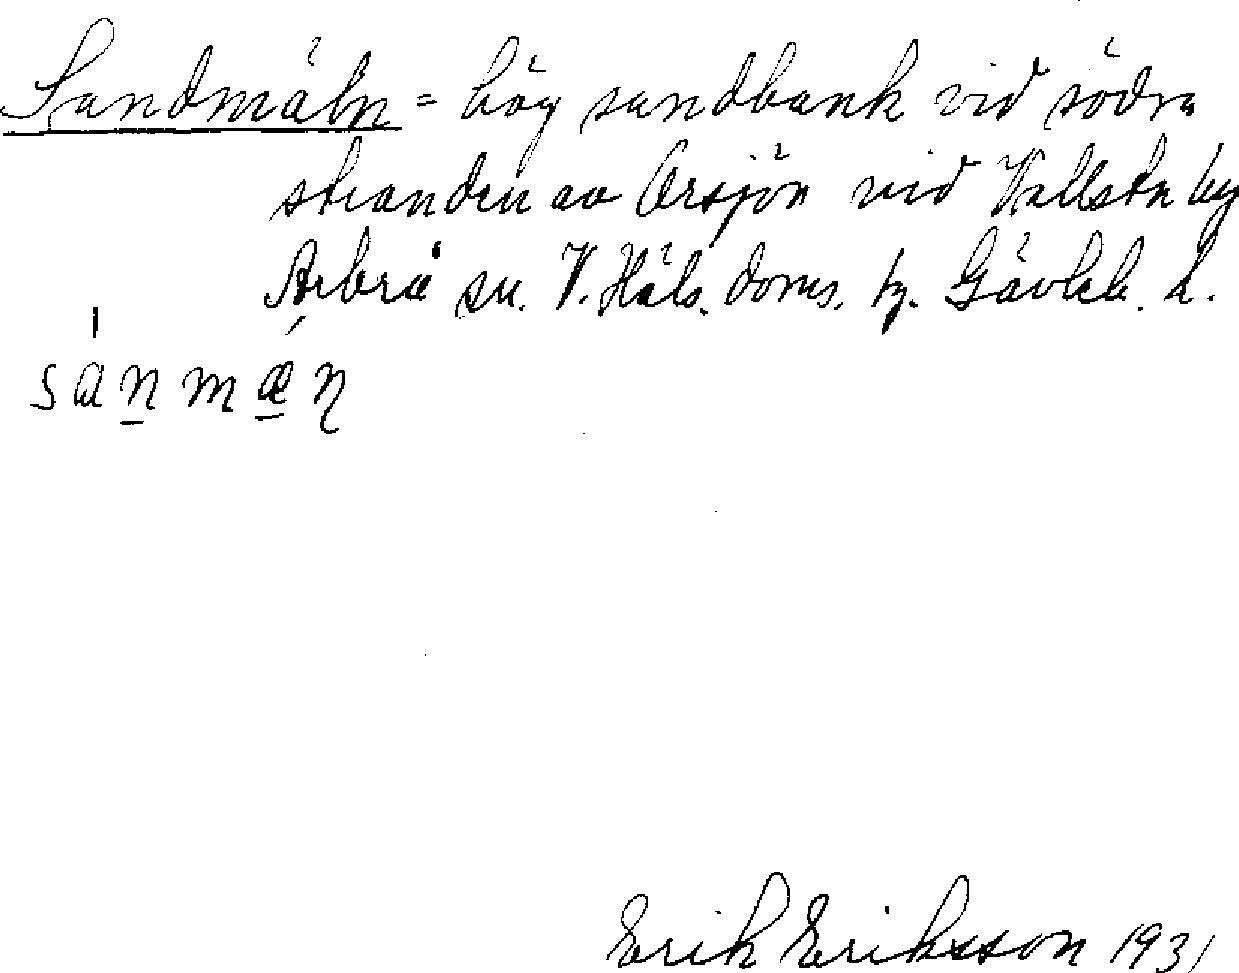 Sandmäln = hög sandbank vid södra
stranden av Orsjön vid Vallsta by
Arbrå sn. V. Häls. doms. h. Gävleb. l.
sanmæn
Erik Eriksson 1931